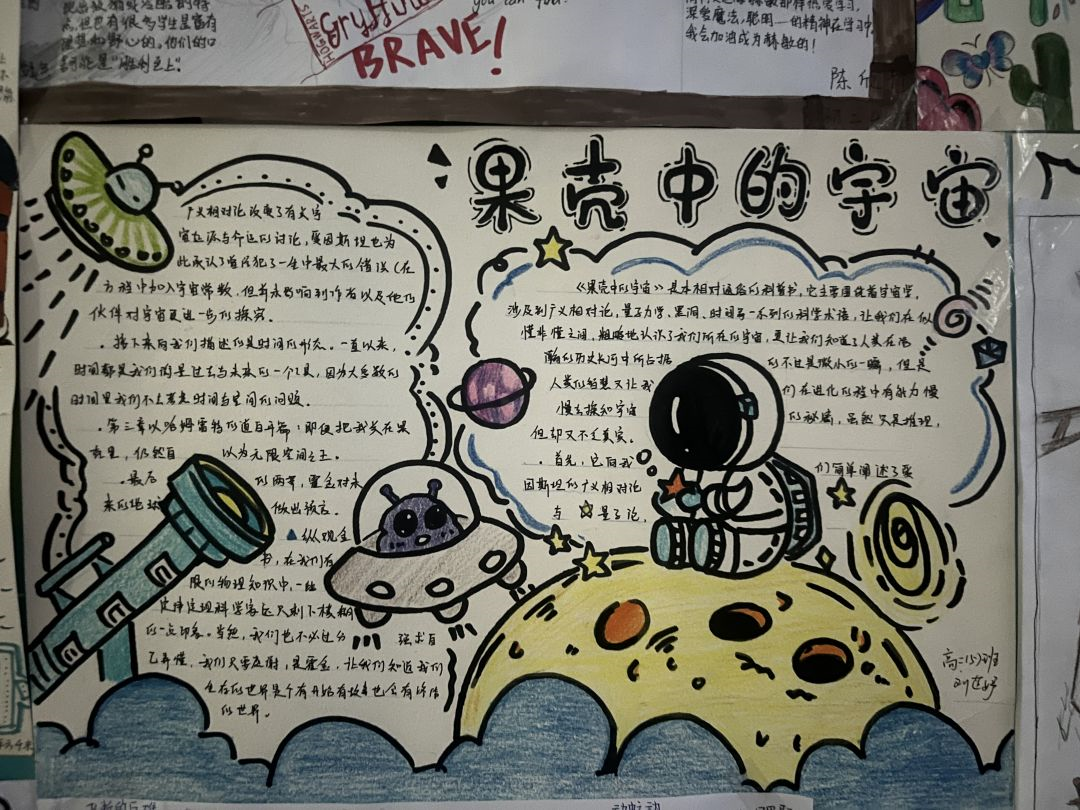 Gryffin
HOGWARTS
BRAVE!
you can you?
深爱魔法,聪明
我会加油成为赫敏的!
陈
果壳中的宇宙
《果壳中的宇宙》是本相对通俗的科普书,它主要围绕着宇宙学,
涉及到广义相对论,量子力学、黑洞、时间等一系列的科学术语,让我们在似
懂非懂之间,粗略地认识了我们所在的宇宙,更让我们知道了人类在浩
瀚的历史长河中所占据的不过是微小的一瞬,但是
人类的智慧又让我们在进化的程中有能力慢
慢去探知宇宙的秘密,虽然只是推理,
但却又不乏真实。
首先,它向我们简单阐述了
因斯坦的广义相对论
与量子论,
广义相对论改变了有关宇
宙起源与命运的讨论,爱因斯坦也为
此承认了曾经犯了一生中最大的错误(在
方程中加入宇宙常数,但并未影响到作者以及他的
伙伴对宇宙更进一步的探究。
接下来向我们描述的是时间的形态。一直以来,
时间都是我们的是过去与未来的一个工具,因为大多数的
时间里我们不去考虑时间与空间的问题。
第三章以哈姆雷特的道白开篇:即便把我关在果
壳里,仍然自以为无限空间之王。
最后的两章,霍金对未
来的地球做出预言。
纵观全
书,在我们有
限的物理知识中,一些
定律定理科学家
的一点印象。当然,我们也不必过分强求自
己弄懂,我们只需应谢,是霍金,让我们知道我们
生存的世界是个有开始有故事也会有结局
的世界。
高二(15)班